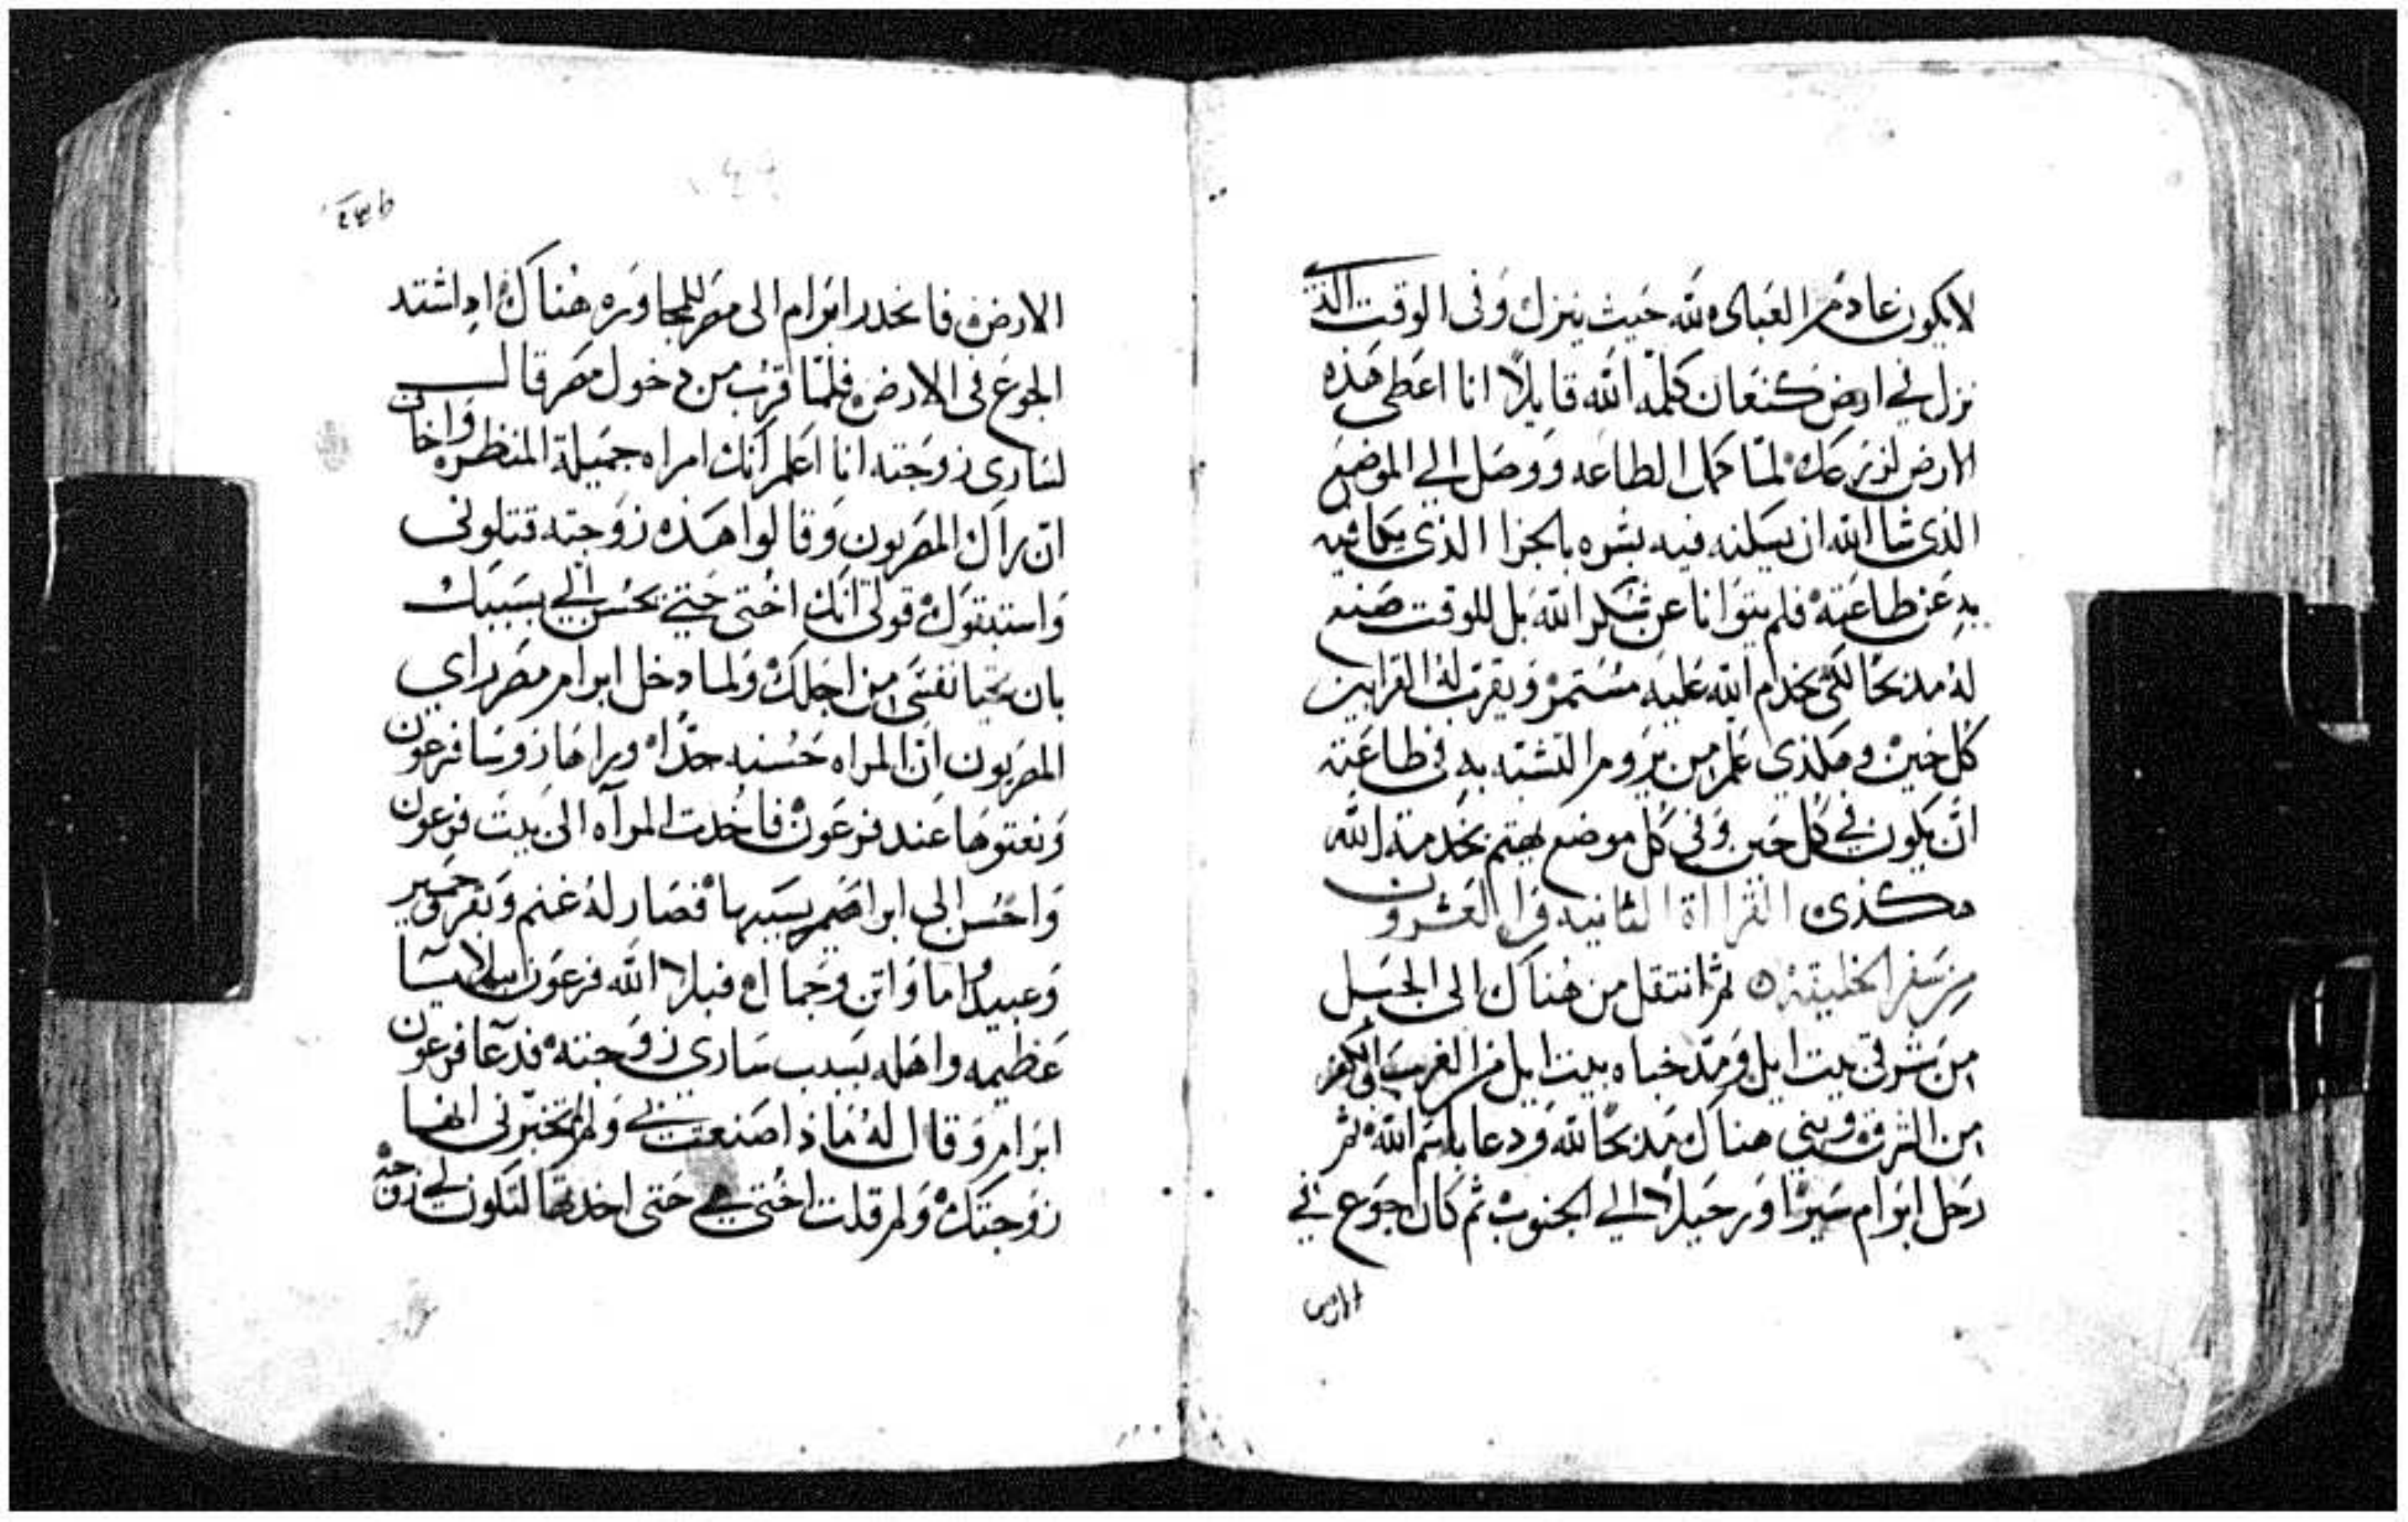 لايكون عادم العباده لله حيث ينزل وفى الوقت الذى
نزل في ارض كنعان كلمه الله قايلاً انا اعطى هذه
الارض لزرعك لمّا كمل الطاعه ووصل الي الموضع
الذى شا الله ان يسكنه فيه بشره بالجزا الذى يكافيه
به عن طاعته فلم يتوانا عن شكر الله بل للوقت صنع
له مدبحًا لكى يخدم الله عليه مستمر ويقرب له القرابين
كل حين وهكذى علم من يروم التشبه به فى طاعته
ان يكون في كل حين وفى كل موضع يهتم بخدمة الله
هكذى القرااة الثانيه والعشرون
من سفر الخليقة ثم انتقل من هناك الى الجبل
من شرقى بيت ايل ومد خباه بيت ايل من الغرب
من الشرق وبنى هناك مدبحًا لله ودعا باسم الله ثم
رحل ابرام سيرًا ورحيلاً الي الجنوب ثم كان جوع في
الارض
الارض فانحدر ابرام الى مصر للمجاوره هناك اد اشتد
الجوع فى الارض فلمّا قرب من دخول مصر قال
لسارى زوجته انا اعلم انك امراه جميلة المنظر واخاف
ان يراك المصريون وقالوا هذه زوجته قتلونى
واستبقوك قولى انك اختى حتي يحسن الي بسببك
بان تحيا نفسى من اجلك ولما دخل ابرام مصر راي
المصريون انّ المراه حسنه جدًا وراها روسا فرعون
ونعتوها عند فرعون فاخدت المرآه الى بيت فرعون
واحسن الى ابراهيم بسببها فصار له غنم وبقر وحمير
وعبيد واما واتن وجمال فبلا الله فرعون
عظيمه واهله بسبب سارى زوجته فدعا فرعون
ابرام وقال له ماذا صنعت بي ولم تخبرنى انها
زوجتك ولم قلت اختى هي حتى اخدتها لتكون لي زوجة